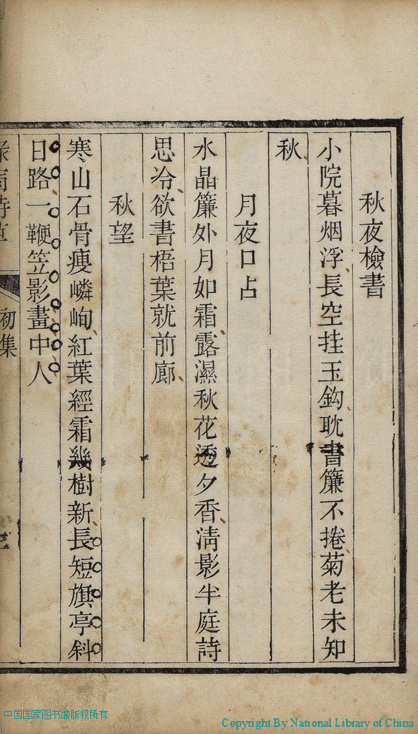 秋夜檢書
小院暮烟浮長空挂玉鈎耽書簾不捲菊老未知
秋
月夜口占
水晶簾外月如霜露濕秋花透夕香淸影半庭詩
思冷欲書梧葉就前廊
秋望
寒山石骨瘦嶙峋紅葉經霜幾樹新長短旗亭斜
日路一鞭笠影畫中人
初集
中国国家图书馆版权所有
Copyright By National Library of China